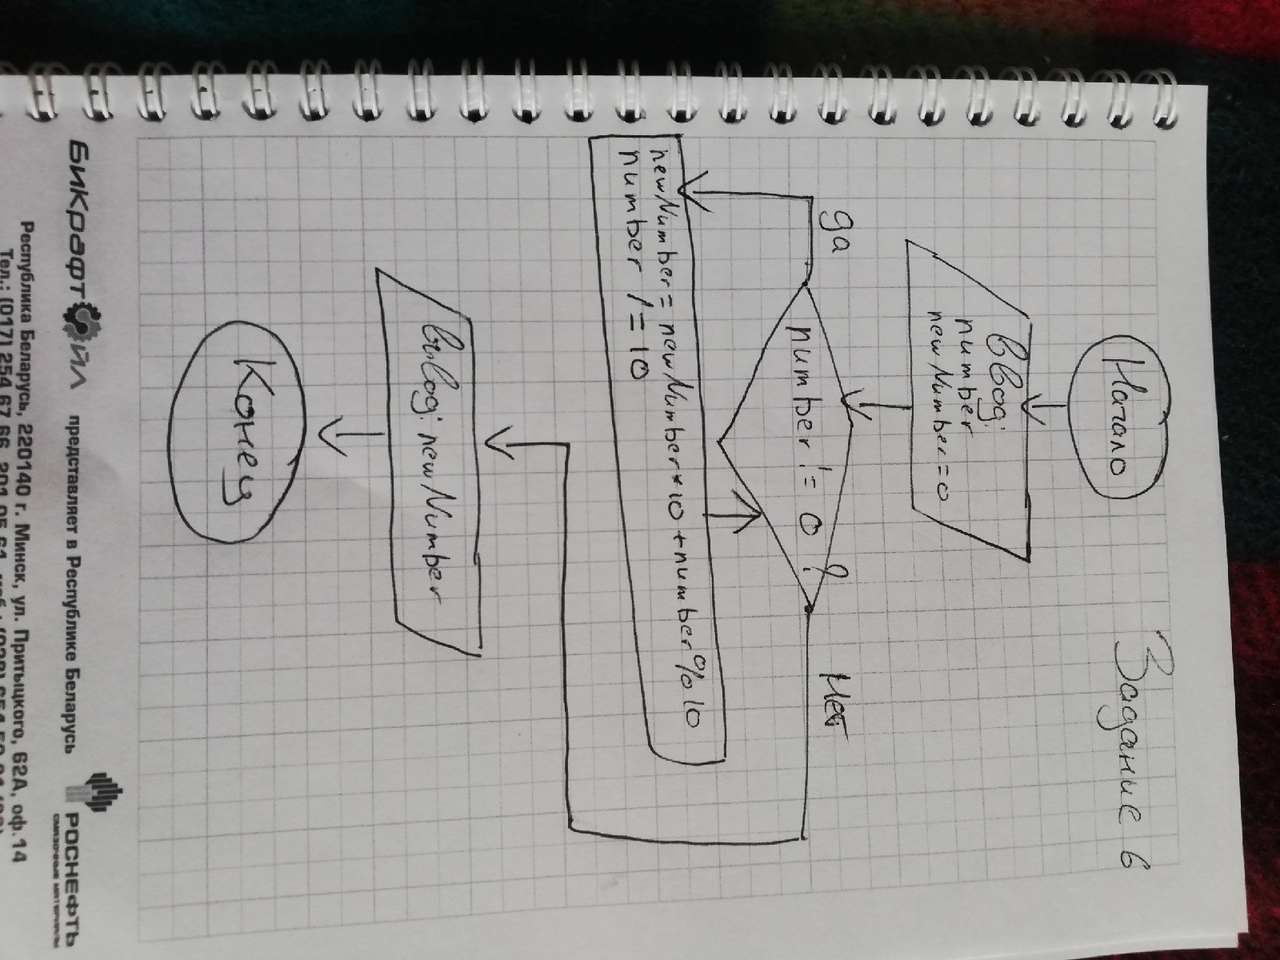 Начало
Задание 6
Ввод:
number
newNumber=0
да
number != 0 ?
Нет
newNumber = newNumber*10 + number%10
number /= 10
вывод: newNumber
Конец
БиКрафт Ойл
представляет в Республике Беларусь
РОСНЕФТЬ
СМАЗОЧНЫЕ МАТЕРИАЛЫ
Республика Беларусь, 220140 г. Минск, ул. Притыцкого, 62А, оф.14
Тел.: (017) 254 67 66, 201 05 61